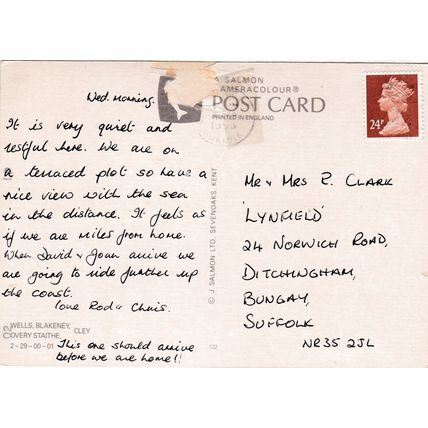 Wed. Morning.
It is very quiet and
restful here. We are on
a terraced plot so have a
nice view with the sea
in the distance. It feels as
if we are miles from home.
When David & Joan arrive we
are going to ride further up
the coast.
love Rod & Chris.
WELLS, BLAKENEY,
OVERY STAITHE, CLEY
2-29-00-01
This one should arrive
before we are home!!
132
© J. SALMON LTD. SEVENOAKS, KENT
A SALMON
CAMERACOLOUR®
POST CARD
PRINTED IN ENGLAND
1993
24P
Mr & Mrs R. CLARK
'LYNFIELD'
24 NORWICH ROAD,
DITCHINGHAM,
BUNGAY,
SUFFOLK
NR35 2JL